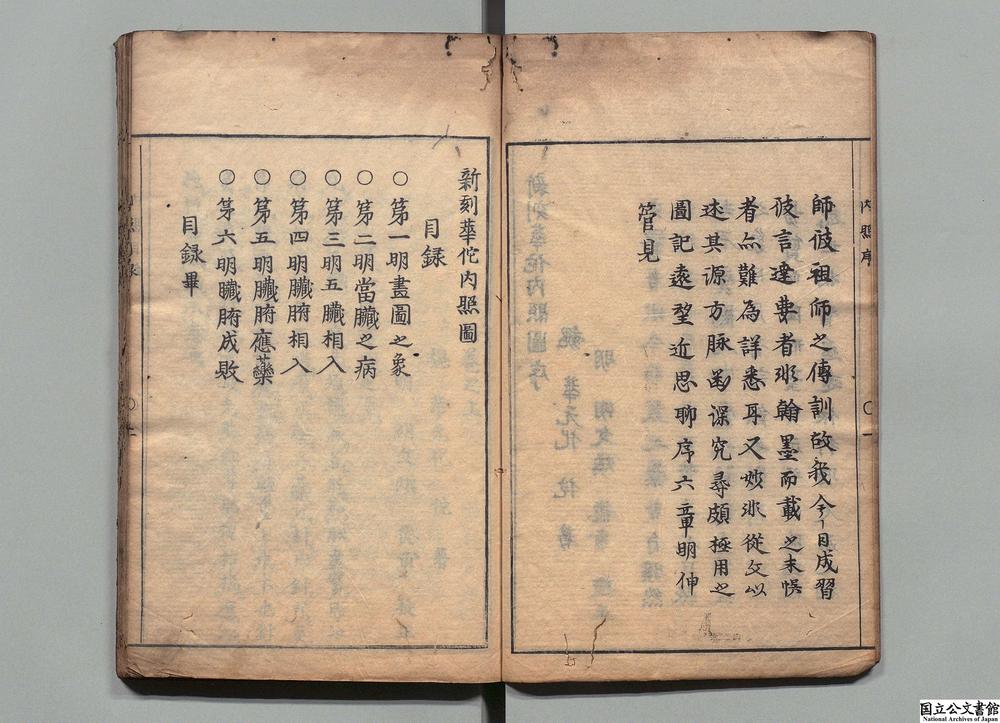 師彼祖師之傳訓故我今日成習
彼言達要者氷翰墨而載之未悮
者亦難為詳悉耳又妙氷從文以
述其源方脉幽深究尋頗極用之
圖記遠望近思聊序六章明伸
管見
内照序
新刻華佗内照圖
目録
○第一明畫圖之象
○第二明當臟之病
○第三明五臟相入
○第四明臟腑相入
○第五明臟腑應藥
○第六明臟腑成敗
目録畢
国立公文書館
National Archives of Japan